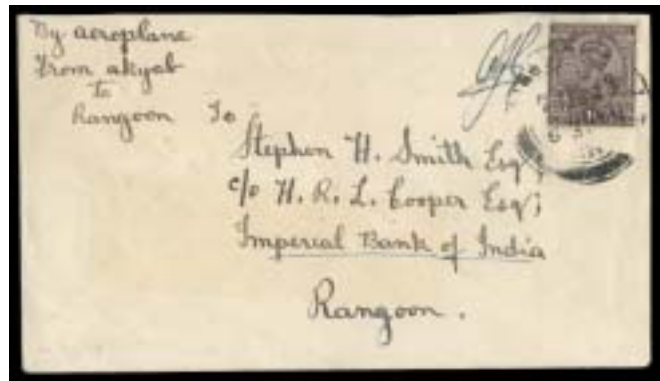 By aeroplane
From akyab
to
Rangoon
To
Stephen H. Smith Esq;
c/o H. R. L. Cooper Esq;
Imperial Bank of India
Rangoon.